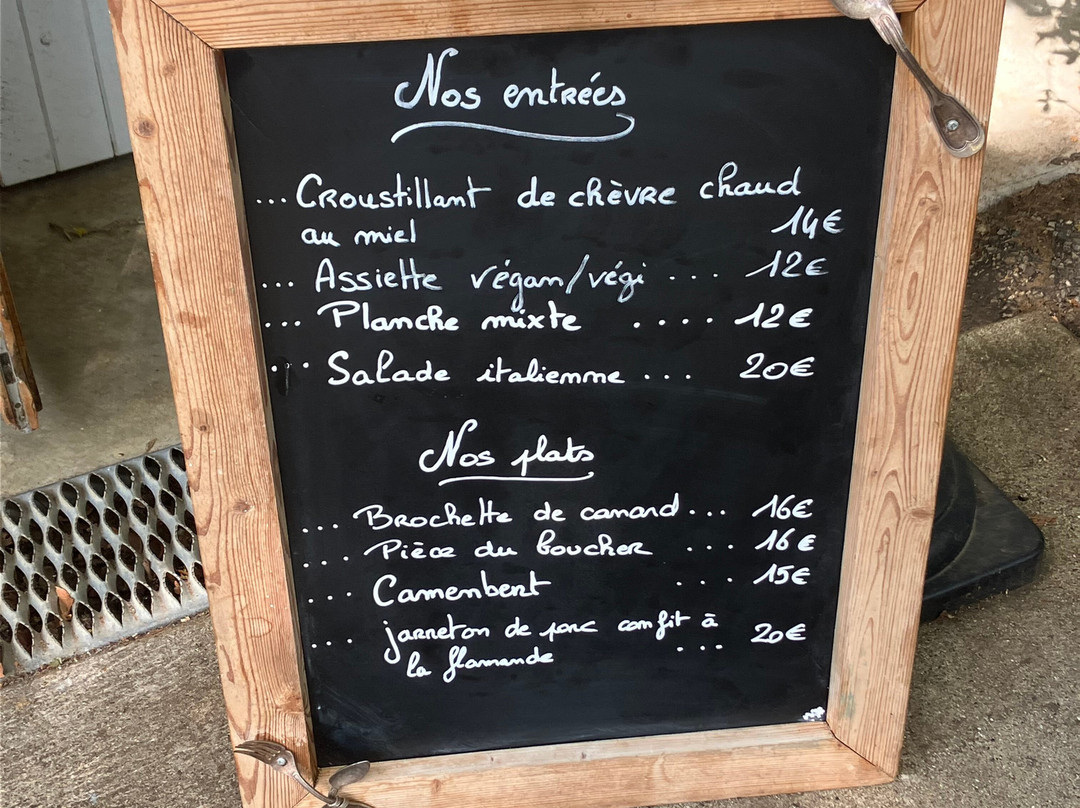 Nos entrées
... Croustillant de chèvre chaud
au miel 14€
... Assiette végan/végi ... 12€
... Planche mixte .... 12€
... Salade italienne ... 20€
Nos plats
... Brochette de canard ... 16€
... Pièce du boucher ... 16€
... Camembert ... 15€
... jarreton de porc confit à ... 20€
la flamande